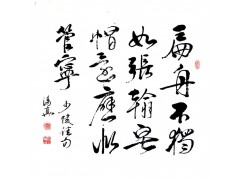 扁舟不獨
如張翰皂
帽還應似
管寧
少陵詩句